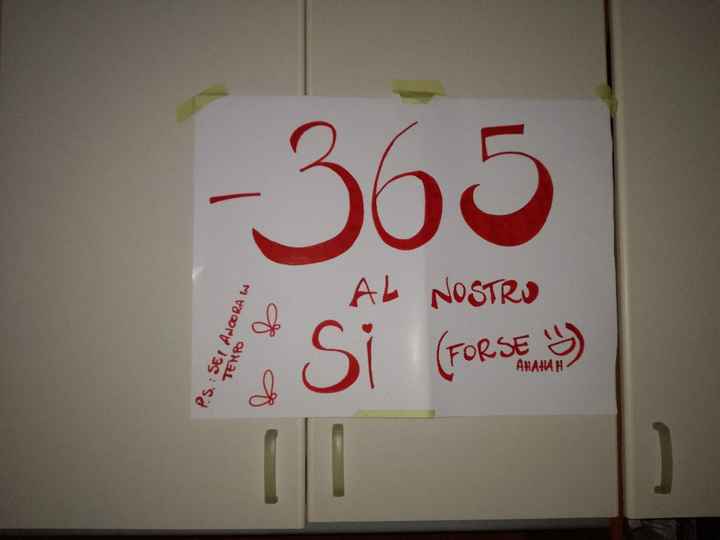 -365
AL NOSTRO
Si (FORSE
AHAHAH)
P.S.: SEI ANCORA IN
TEMPO